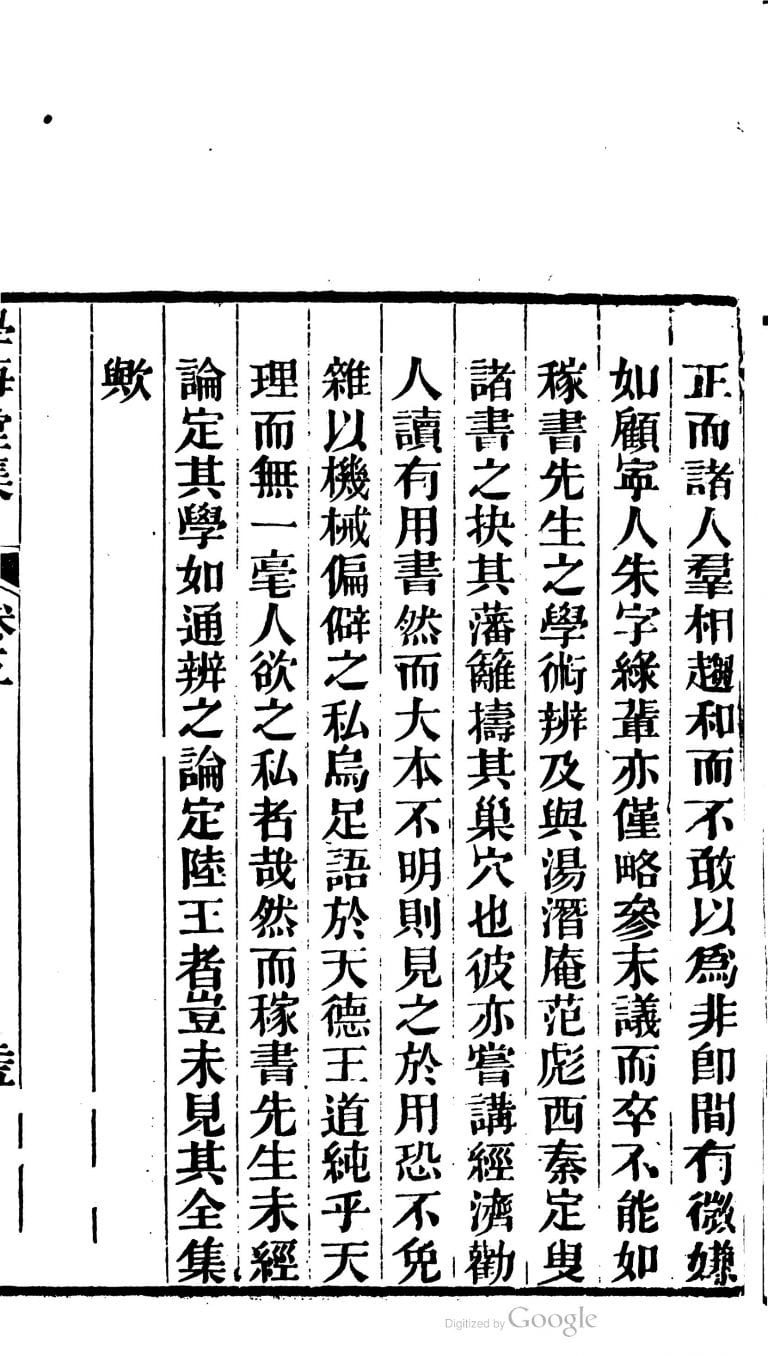 正而諸人羣相趨和而不敢以爲非卽間有微嫌
如顧寜人朱字綠輩亦僅略參末議而卒不能如
稼書先生之學術辨及與湯潛庵范彪西秦定叟
諸書之抉其藩籬擣其巢穴也彼亦嘗講經濟勸
人讀有用書然而大本不明則見之於用恐不免
雜以機械偏僻之私烏足語於天德王道純乎天
理而無一毫人欲之私者哉然而稼書先生未經
論定其學如通辨之論定陸王者豈未見其全集
歟
Digitized by Google